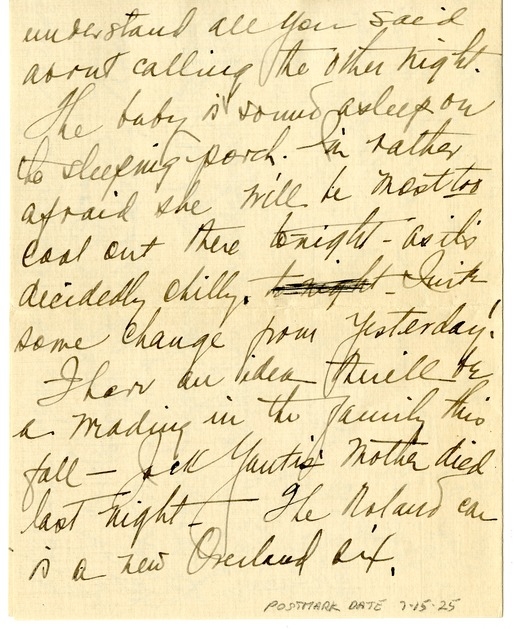 understand all you said
about calling the other night.
The baby is sound asleep on
the sleeping porch. I'm rather
afraid she will be most too
cool out there tonight - as it's
decidedly chilly. tonight - Quite
some change from yesterday!
I have an idea there'll be
a wedding in the family this
fall - Jack Yantis' Mother died
last night - The Roland car
is a new Overland six.
POSTMARK DATE 7-15-25